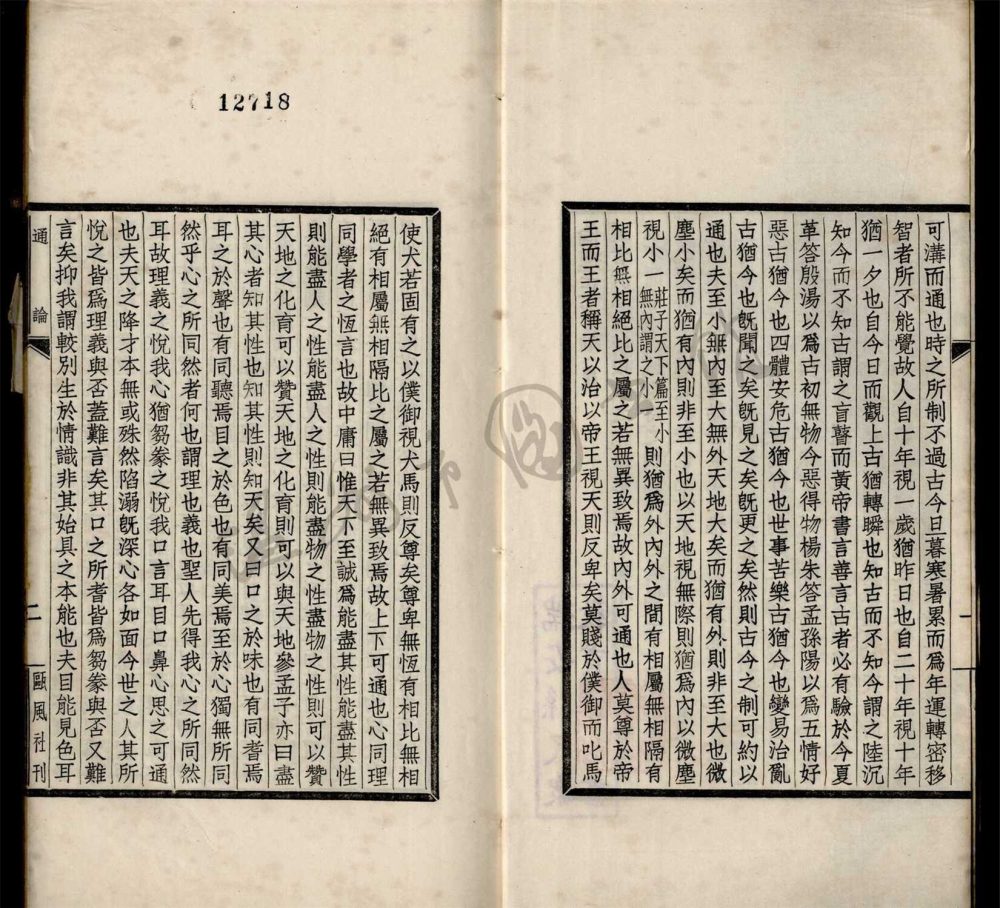 12718
可溝而通也時之所制不過古今日暮寒暑累而爲年運轉密移
智者所不能覺故人自十年視一歲猶昨日也自二十年視十年
猶一夕也自今日而觀上古猶轉瞬也知古而不知今謂之陸沉
知今而不知古謂之盲瞽而黃帝書言善言古者必有驗於今夏
革答殷湯以爲古初無物今惡得物楊朱答孟孫陽以爲五情好
惡古猶今也四體安危古猶今也世事苦樂古猶今也變易治亂
古猶今也旣聞之矣旣見之矣旣更之矣然則古今之制可約以
通也夫至小無內至大無外天地大矣而猶有外則非至大也微
塵小矣而猶有內則非至小也以天地視無際則猶爲內以微塵
視小一莊子天下篇至小無內謂之小一則猶爲外內外之間有相屬無相隔有
相比無相絕比之屬之若無異致焉故內外可通也人莫尊於帝
王而王者稱天以治以帝王視天則反卑矣莫賤於僕御而叱馬
使犬若固有之以僕御視犬馬則反尊矣尊卑無恆有相比無相
絕有相屬無相隔比之屬之若無異致焉故上下可通也心同理
同學者之恆言也故中庸曰惟天下至誠爲能盡其性能盡其性
則能盡人之性能盡人之性則能盡物之性盡物之性則可以贊
天地之化育可以贊天地之化育則可以與天地參孟子亦曰盡
其心者知其性也知其性則知天矣又曰口之於味也有同耆焉
耳之於聲也有同聽焉目之於色也有同美焉至於心獨無所同
然乎心之所同然者何也謂理也義也聖人先得我心之所同然
耳故理義之悅我心猶芻豢之悅我口言耳目口鼻心思之可通
也夫天之降才本無或殊然陷溺旣深心各如面今世之人其所
悅之皆爲理義與否蓋難言矣其口之所耆皆爲芻豢與否又難
言矣抑我謂較別生於情識非其始具之本能也夫目能見色耳
通論
二
甌風社刊